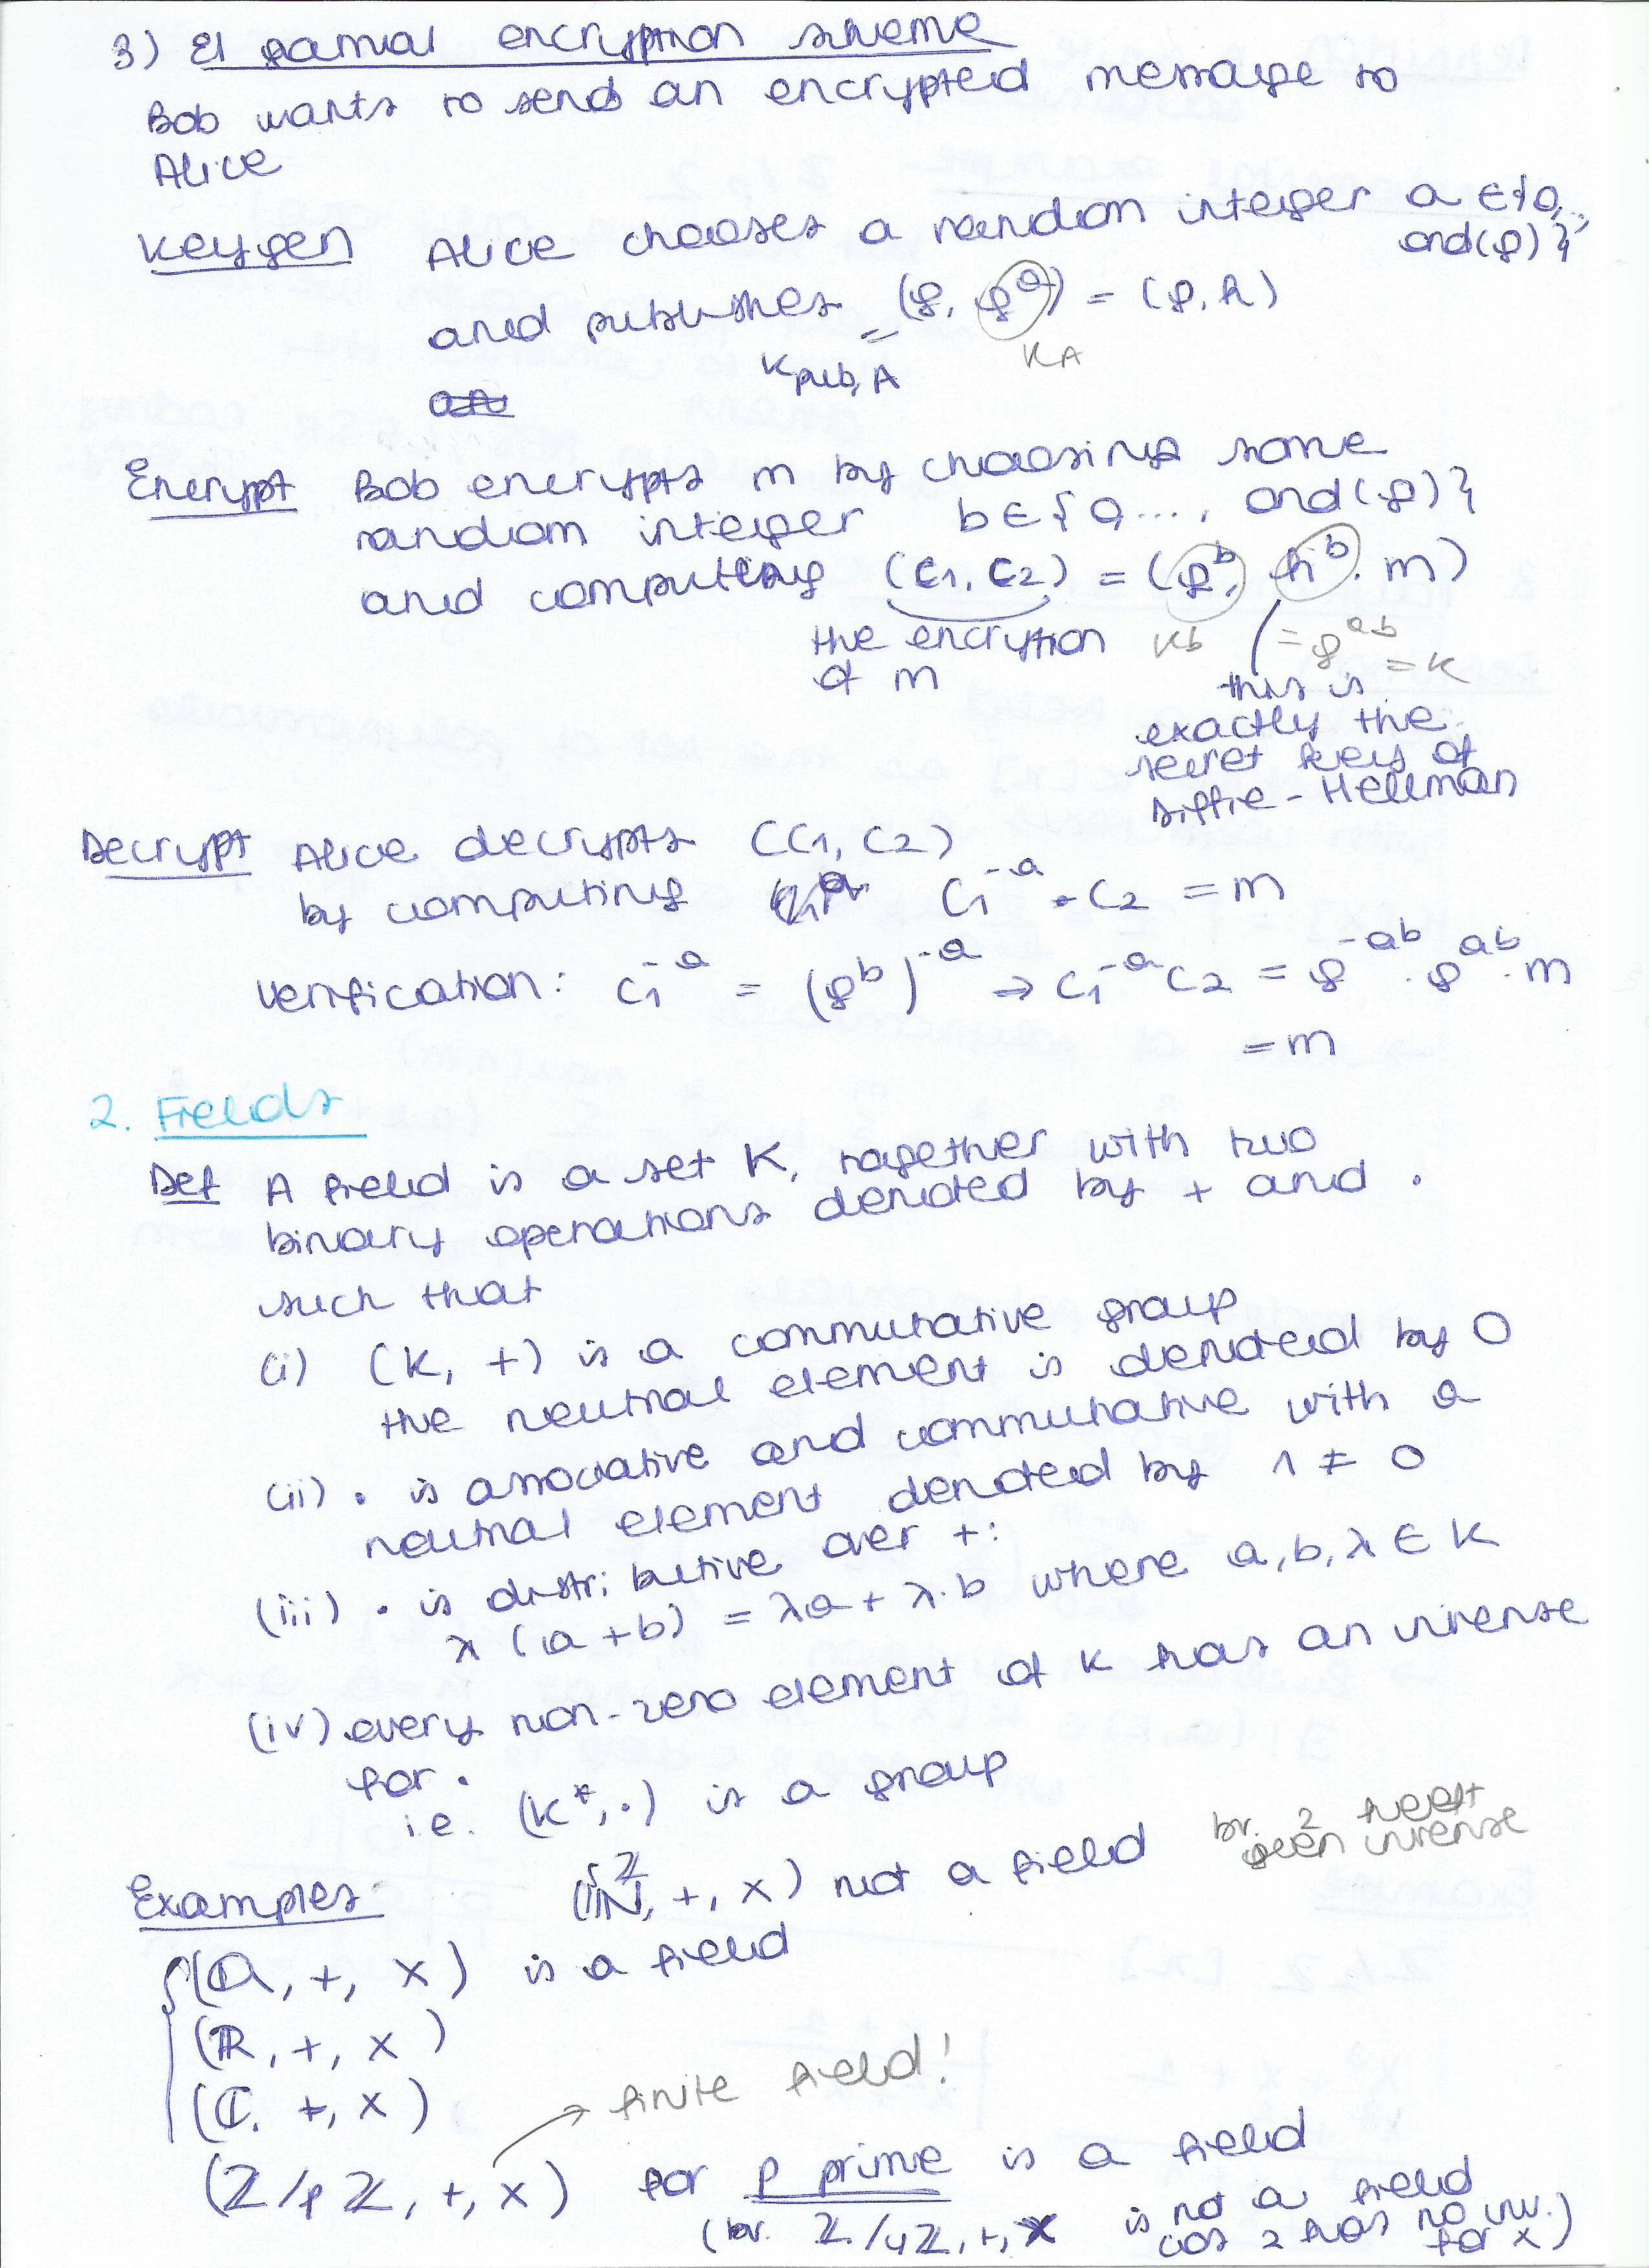 3) El gamal encryption scheme
Bob wants to send an encrypted message to
Alice
Keygen Alice chooses a random integer a ∈ {0,..,
ord(g)}
and publishes (g, g^a) = (g, h)
= K_A
K_pub,A
Encrypt Bob encrypts m by choosing some
random integer b ∈ {0,..., ord(g)}
and computing (c1, c2) = (g^b, h^b · m)
the encryption K_b = g^ab
of m = K
this is
exactly the
secret key of
Diffie-Hellman
Decrypt Alice decrypts (c1, c2)
by computing c1^-a · c2 = m
Verification: c1^-a = (g^b)^-a ⇒ c1^-a c2 = g^-ab · g^ab · m
= m
2. Fields
Def A field is a set K, together with two
binary operations denoted by + and ·
such that
(i) (K, +) is a commutative group
the neutral element is denoted by 0
(ii) · is associative and commutative with a
neutral element denoted by 1 ≠ 0
(iii) · is distributive over +:
λ (a+b) = λa + λ·b where a, b, λ ∈ K
(iv) every non-zero element of K has an inverse
for ·
i.e. (K*, ·) is a group
bv. 2 heeft
geen inverse
Examples ℤ
(ℕ, +, x) not a field
(ℚ, +, x) is a field
(ℝ, +, x)
(ℂ, +, x)
→ finite field!
(ℤ/pℤ, +, x) for p prime is a field
(bv. ℤ/4ℤ, +, x is not a field
cos 2 has no inv.
for x)